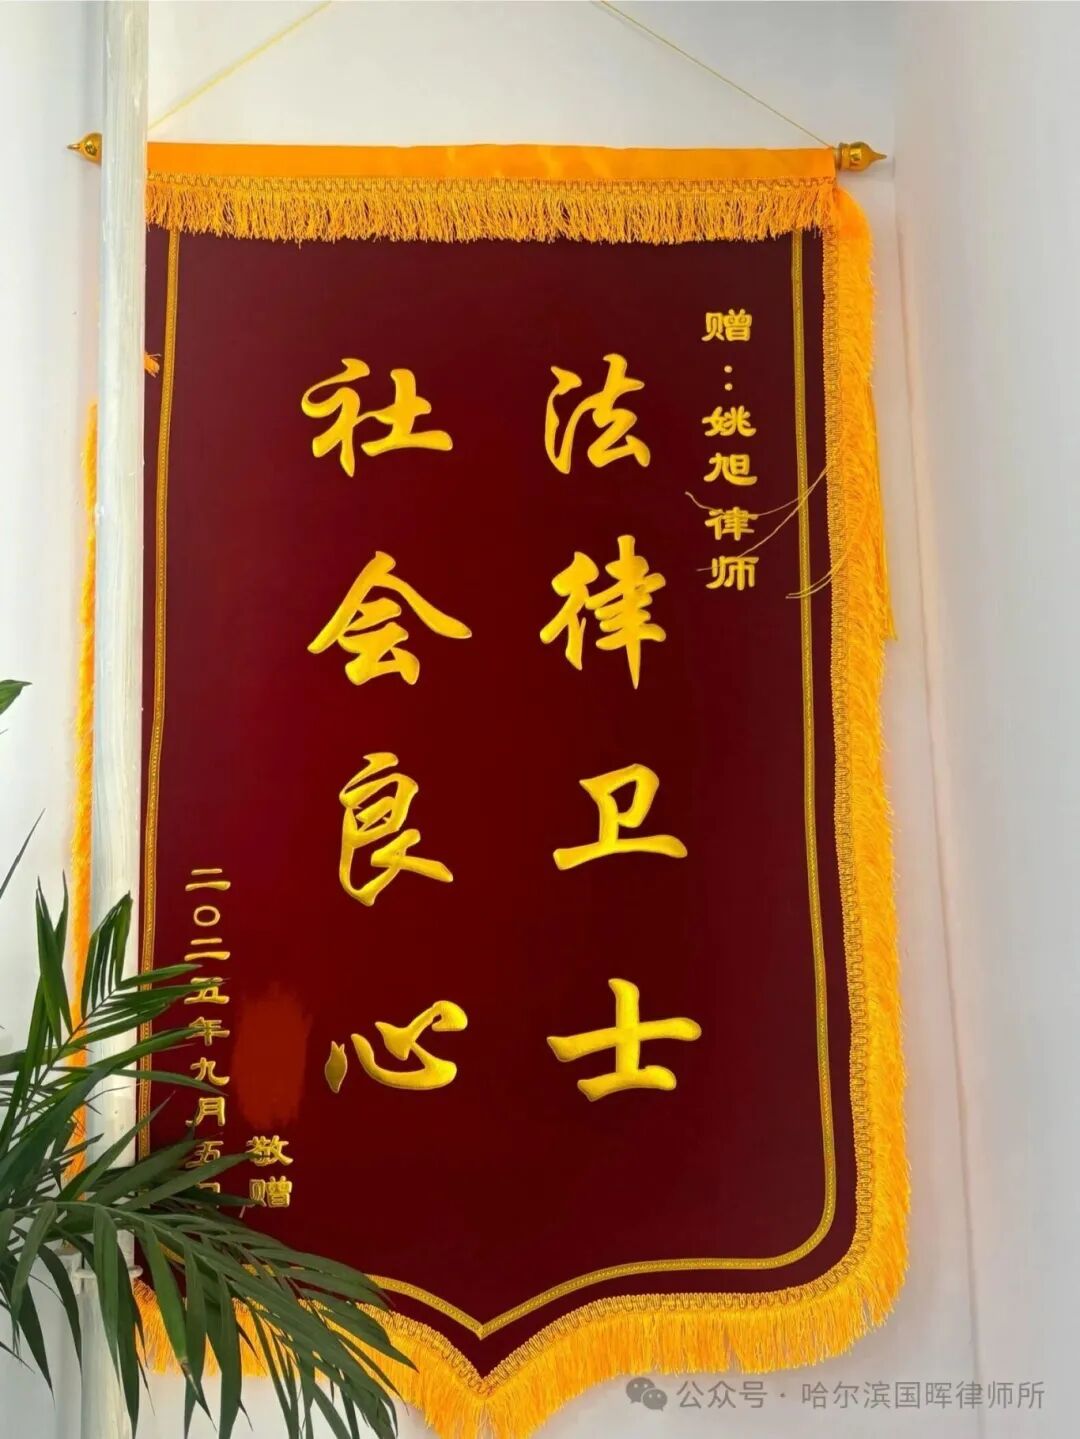 赠：姚旭律师
法律卫士
社会良心
敬赠
二〇二五年九月五日
公众号·哈尔滨国晖律师所